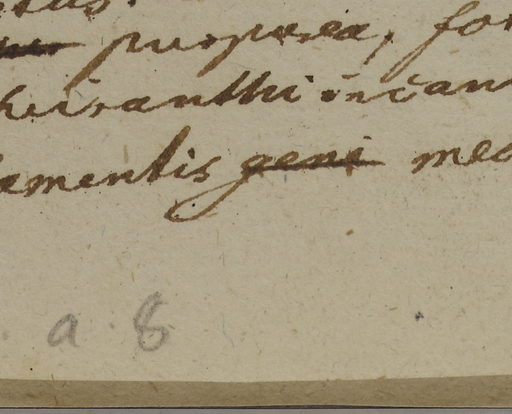 purpurea, fo
heiranthi incan
amentis geni med
a 8